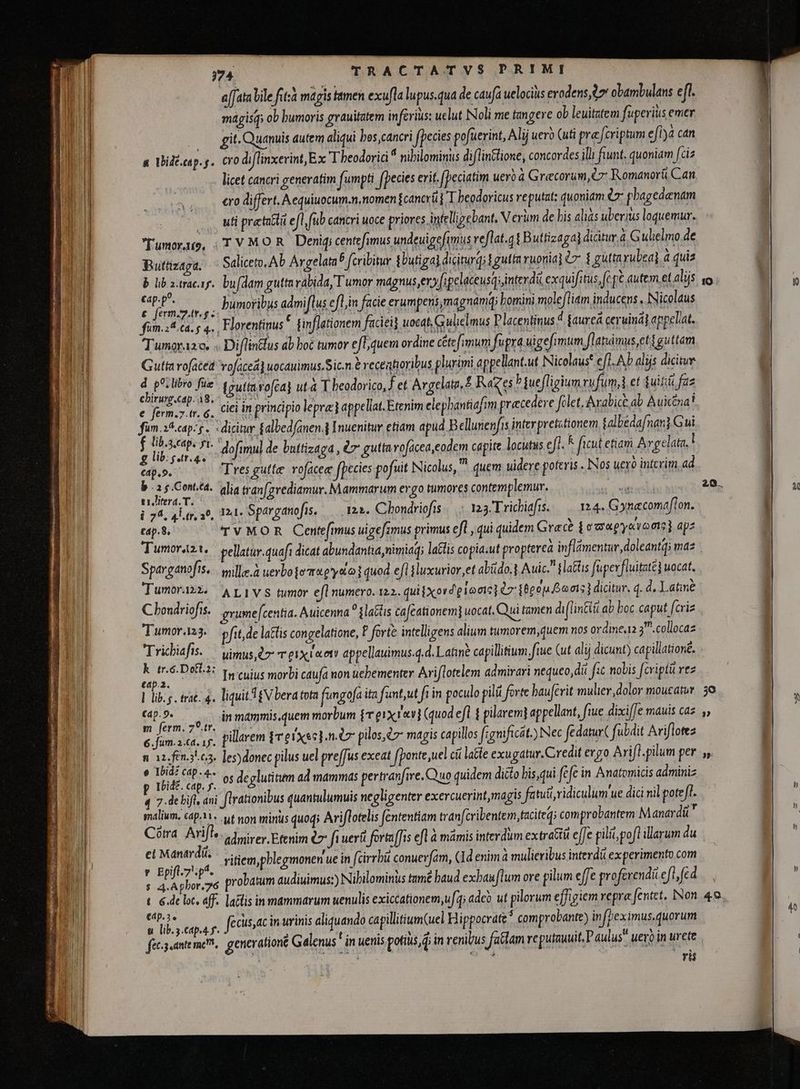 374 TRACTATVS PRIMI
assata bile fit:à magis tamen exusta lupus.qua de causa uelociùs erodens,& obambulans est.
magisq; ob humoris grauitatem inferiùs: uelut Noli me tangere ob leuitatem superiùs emer
git. Quanuis autem aliqui hos,cancri species posuerint, Alij uerò (uti præscriptum est)à can
a Ibidē.cap.5. cro distinxerint, Ex Theodorici a nihilominùs distinctione, concordes illi fiunt. quoniam scis
licet cancri generatim sumpti species erit. speciatim uerò à Græcorum,& Romanorũ Can
cro differt. Aequiuocum.n.nomen {cancrũ} Theodoricus reputat: quoniam & phagedænam
uti prætactũ est,sub cancri uoce priores intelligebant. Verùm de his aliàs uberius loquemur.
Tumor.119. TVMOR Deniq; centesimus undeuigesimus restat.q {Buttizaga} dicitur à Gulielmo de
Buttizaga. Saliceto. Ab Argelata b scribitur {butiga} diciturq; {gutta ruonia} & {gutta rubea} à quis
b lib 2.trac.15. busdam gutta rabida, Tumor magnus, erysipelaceusq;,interdũ exquisitus,sępè autem et alijs 10
cap.p°. humoribus admistus est,in facie erumpens,magnamq; homini molestiam inducens. Nicolaus
c serm.7.tr.5:
sum.2a ca.5 4. Florentinus c {inflationem faciei} uocat. Gulielmus Placentinus d {aurea ceruina} appellat.
Tumor.120. Distinctus ab hoc tumor est,quem ordine cētesimum supra uigesimum statuimus,et {guttam
Gutta rosacea rosacea} uocauimus.Sic.n.è recentioribus plurimi appellant.ut Nicolaus e est.Ab alijs dicitur
d p°.libro suæ {gutta rosea} ut à Theodorico, f et Argelata. g Razes h {uestigium rufum}. et {uitiũ faz
chirurg.cap.18.
e serm.7.tr.6. ciei in principio lepræ} appellat. Etenim elephantiasim præcedere solet. Arabicè ab Auicēna i
sum.2a.cap.5. dicitur {albedsanen}. Inuenitur etiam apud Bellunensis interpretationem {albedasnan} Gui
f lib.3.cap. 51. dosimul de buttizaga, & gutta rosacea,eodem capite locutus est. k sicut etiam Argelata. l
g lib.5.tr.4.
cap.9. Tres guttæ rosaceæ species posuit Nicolus, m quem uidere poteris. Nos uerò interim ad
h 25.Cont.ca. alia transgrediamur. Mammarum ergo tumores contemplemur. 20
11.litera.T.
i 7a. 4i.tr.3°, 121. Sparganosis. 122. Chondriosis. 123. Trichiasis. 124. Gynæcomaston.
cap.8. TVMOR Centesimus uigesimus primus est, qui quidem Græcè {σπαργάνωσις} aps
Tumor.121. pellatur.quasi dicat abundantia,nimiaq; lactis copia.ut propterea inflāmentur,doleantq; mas
Sparganosis. millæ.à uerbo {σπαργάω} quod est {luxurior,et abũdo.} Auic. n {lactis superfluitatē} uocat.
Tumor.122. ALIVS tumor est numero. 122. qui {χονδρίωσις} & {θρόμβωσις} dicitur. q. d. Latinè
Chondriosis. grumescentia. Auicenna o {lactis caseationem} uocat. Qui tamen distinctũ ab hoc caput scris
Tumor.123. psit,de lactis congelatione, p fortè intelligens alium tumorem,quem nos ordine.123m.collocas
Trichiasis. uimus,& τριχίασιν appellauimus.q.d.Latinè capillitium,siue (ut alij dicunt) capillationē.
k tr.6.Doct.2:
cap.2. In cuius morbi causa non uehementer Aristotelem admirari nequeo,dũ sic nobis scriptũ res
l lib.5.trat.4. liquit q {Vbera tota fungosa ita sunt,ut si in poculo pilũ fortè hauserit mulier,dolor moueatur 30
cap.9. in mammis.quem morbum {τριχιᾶν} (quod est {pilarem} appellant, siue dixisse mauis cas „
m serm. 7°.tr.
6.sum.2.ca.15. pillarem {τρίχες}.n.& pilos,& magis capillos significāt.) Nec sedatur (subdit Aristotes
n 12.fēn.3i.c3. les)donec pilus uel pressus exeat sponte,uel cũ lacte exugatur.Credit ergo Arist.pilum per „
o Ibidē cap.4.
p Ibidē.cap.5. os deglutitum ad mammas pertransire.Quo quidem dicto his,qui sęse in Anatomicis adminis
q 7.de hist. ani strationibus quantulumuis negligenter exercuerint,magis fatuũ,ridiculum ue dici nil potest.
malium. cap.11. ut non minùs quoq; Aristotelis sententiam transcribentem,taciteq; comprobantem Manardũ r
Cōtra Aristo. admirer.Etenim & si uerũ fortassis est à māmis interdùm extractũ esse pilũ,post illarum du
et Manardũ. ritiem,phlegmonen ue in scirrhũ conuersam, (Id enim à mulieribus interdũ experimento com
r Epist.7i.p°.
s 4.Aphor.76 probatum audiuimus:) Nihilominùs tamē haud exhaustum ore pilum esse proferendũ est,sed
t 6.de loc. aff. lactis in mammarum uenulis exiccationem,usq; adeò ut pilorum effigiem repræsentet. Non 40
cap.3.
u lib.3.cap.45. secùs,ac in urinis aliquando capillitium(uel Hippocrate s comprobante) inspeximus.quorum
sec.3.ante me. generationē Galenus t in uenis potiùs,q̃ in renibus factam reputauit.Paulus u uerò in urete
ris